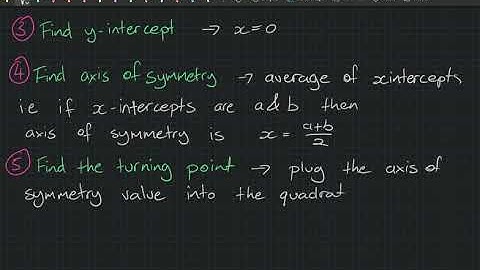 ③ Find y-intercept → x=0
④ Find axis of symmetry → average of x intercepts
i.e if x-intercepts are a & b then
axis of symmetry is x = a+b/2
⑤ Find the turning point → plug the axis of
symmetry value into the quadrat